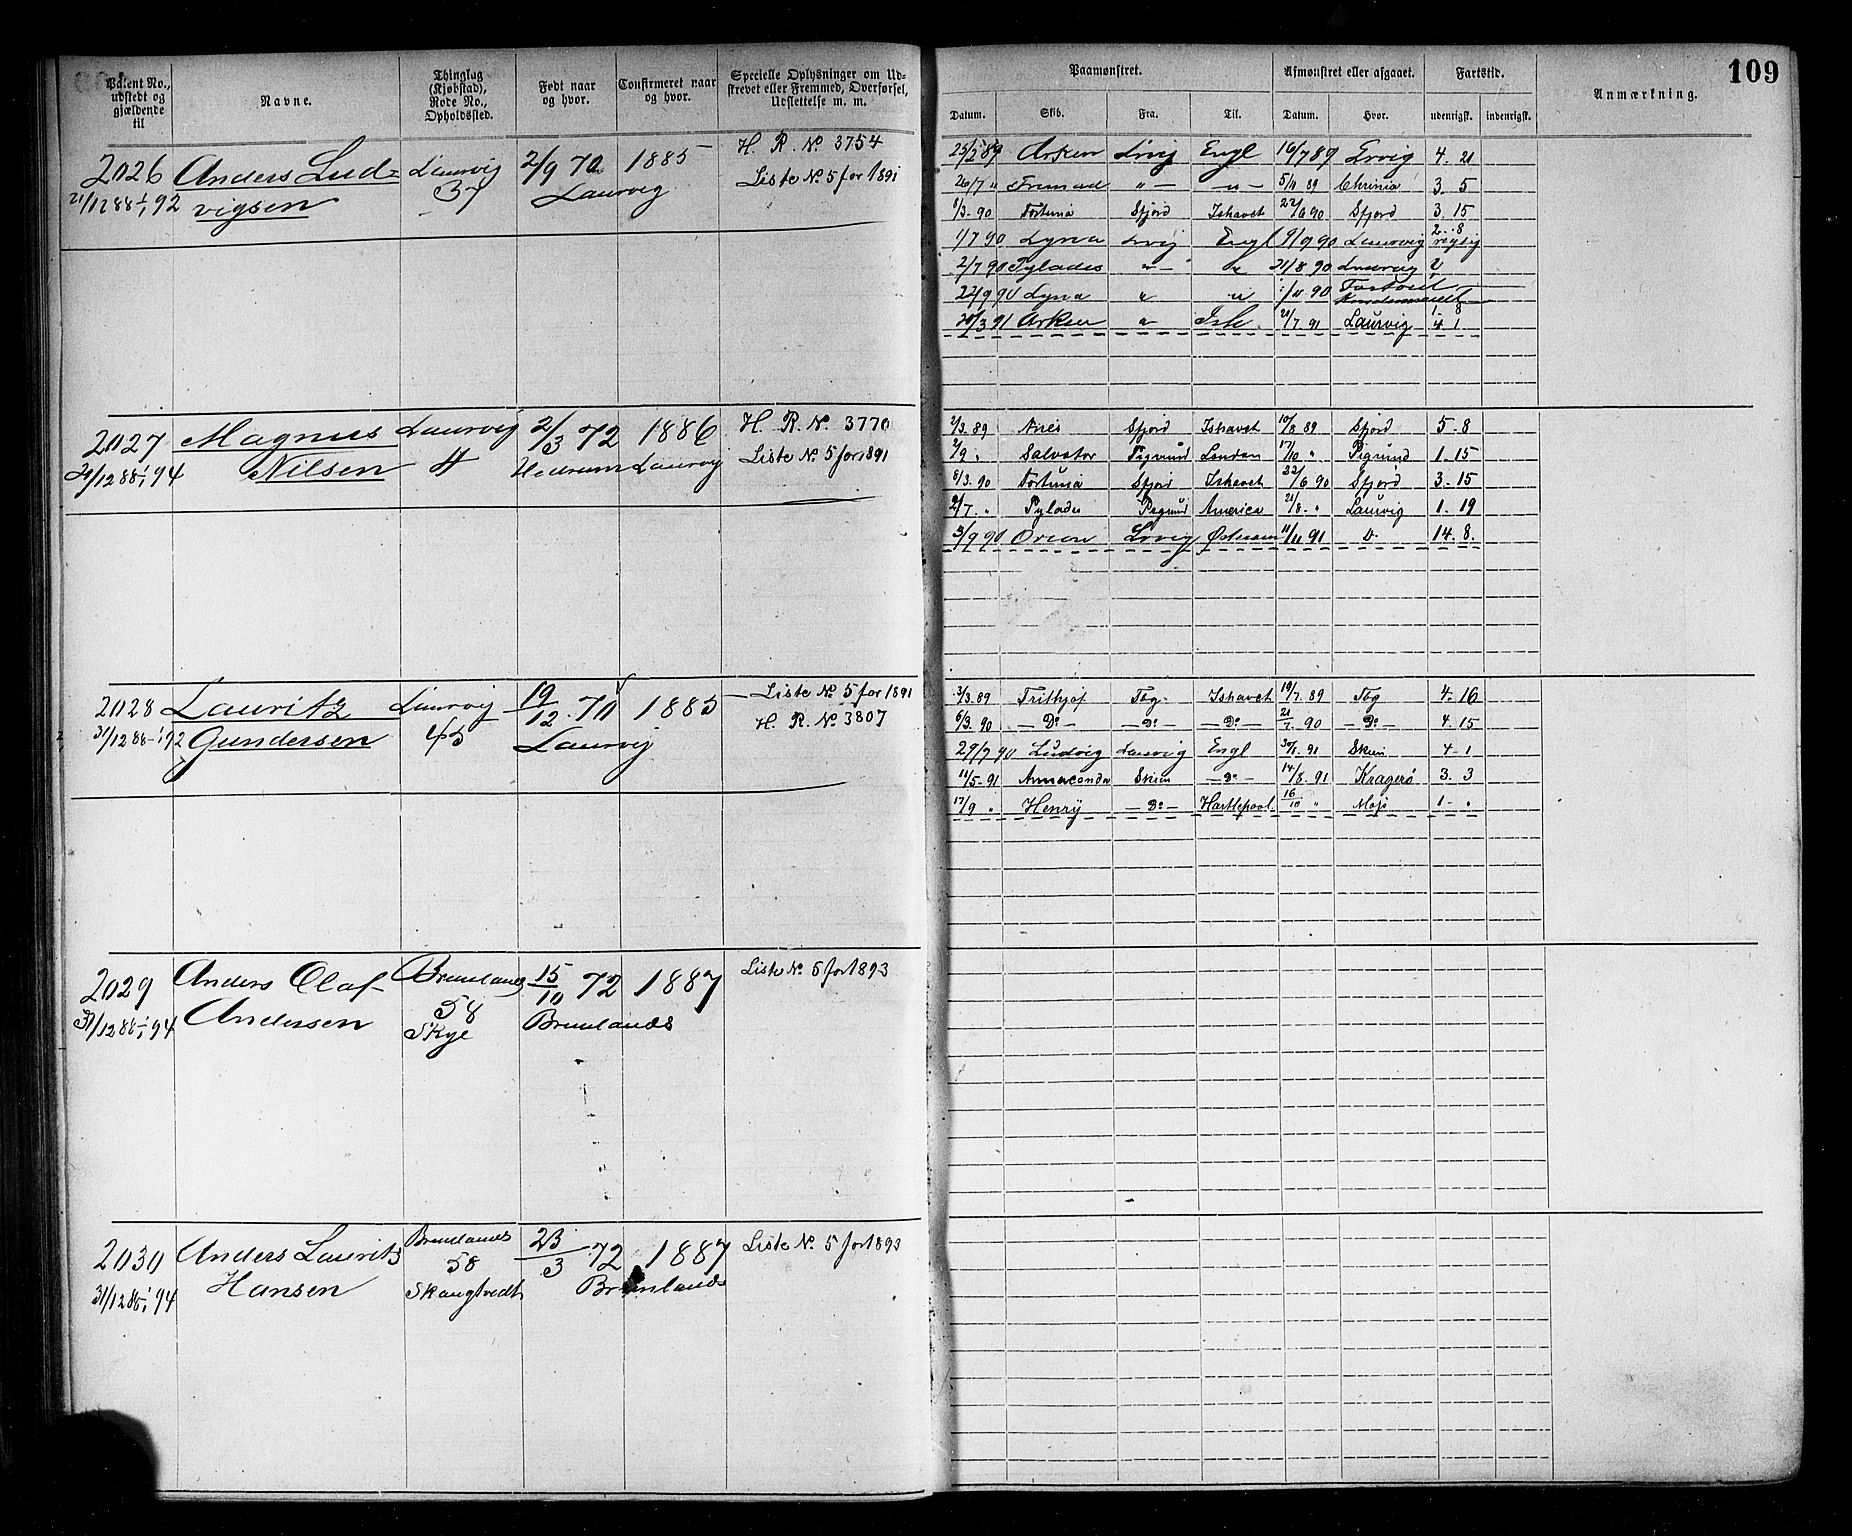 109
Patent No., udstedt og gjældende til
Navne.
Thinglag (Kjøbstad), Rode No., Opholdssted.
Født naar og hvor.
Confirmeret naar og hvor.
Specielle Oplysninger om Udstrevet eller Fremmed, Overførsel, Udslettelse m. m.
Paamønstret.
Afmønstret eller afgaaet.
Fartstid.
Anmærkning.
Datum. Skib. Fra. Til. Datum. Hvor. udenrigsk. indenrigsk.
2026 Anders Lud- Laurvig 2/9 70 1885 H. R. No 3754
21/12 88 1/1 92 vigsen 37 Laurvig Liste No. 5 for 1891
25/2 89 Arken Lrvig Engl 16/7 89 Lrvig 4. 21
26/7 " Fremad " — — " — 5/11 89 Chrinia 3. 5
8/3 90 Fortuna Sfjord Ishavet 22/6 90 Sfjord 3. 15
1/7 90 Lyna Lrvig Engl 9/9 90 Laurvig 2 " 8
2/7 90 Pylades " — " 21/8 90 Laurvig
22/9 90 Lyna " " /11 90
20/3 91 Arken " Ish. 20/7 91 Laurvig 4 1
2027 Magnus Laurvig 2/3 72 1886 H. R. No 3770
31/12 88 1/1 94 Nilsen 4 Hedrum Laurvig Liste No. 5 for 1891
2/3 89 Aries Sfjord Ishavet 10/8 89 Sfjord 5 - 8
2/9 " Salvator Pigrund London 17/10 " Pigrund 1. 15
8/3 90 Fortuna Sfjord Ishavet 22/6 90 Sfjord 3 - 15
2/7 " Pylades Pigrund America 21/8 - " Laurvig 1. 19
3/9 90 Orion Lrvig Østersøen 11/11 91 D. 14. 8.
2028 Lauritz Laurvig 19/12 70 1885 Liste No. 5 for 1891
31/12 88 1/1 92 Gundersen 45 Laurvig H. R. No. 3807
3/3 89 Frithjof Tbg. Ishavet 19/7 89 Tbg 4. 16
6/3 90 — Do — — Do — — Do — 21/7 90 — Do — 4. 15
29/9 90 Ludvig Laurvig Engl 30/1 91 Skien 4 - 1
11/5 91 Annaconda Skien — Do — 14/8 91 Kragerø 3. 3
17/9 " Henry — Do — Hartlepool 16/10 " Mosj 1 - "
2029 Anders Olaf Brunlanes 15/10 72 1887 Liste No. 5 for 1893
31/12 88 1/1 94 Andersen 58 Brunlanes
Skye
2030 Anders Lauritz Brunlanes 23/3 72 1887 Liste No. 5 for 1893
31/12 88 1/1 94 Hansen 58 Brunlanes
Skaugtvedt